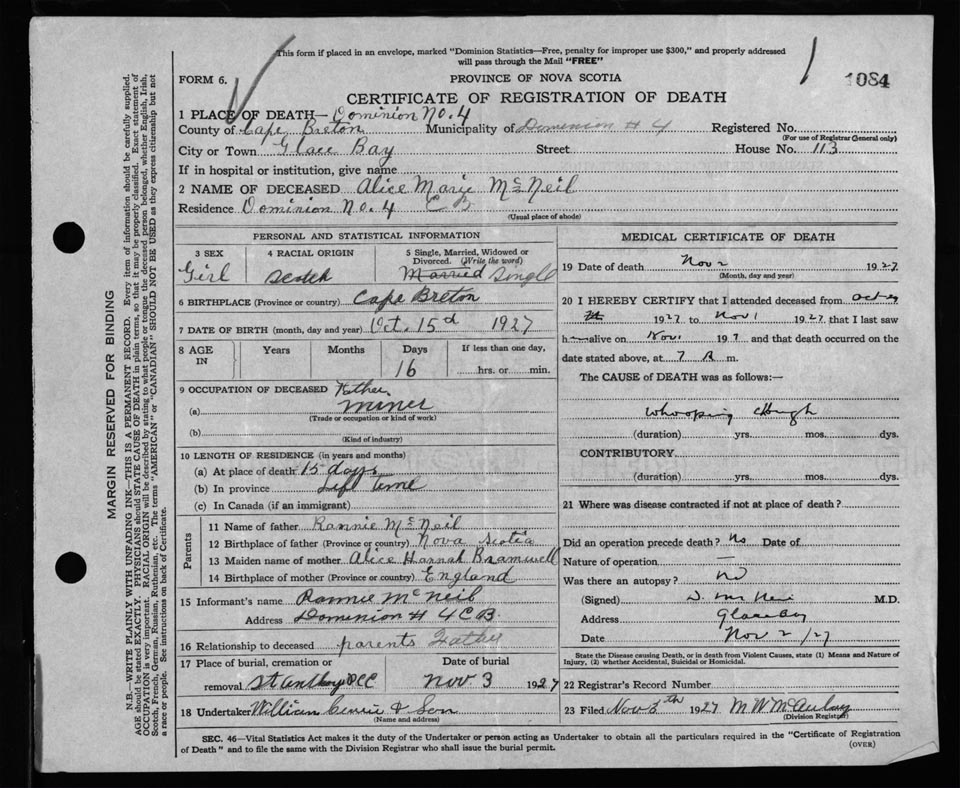 This form if placed in an envelope, marked "Dominion Statistics—Free, penalty for improper use $300," and properly addressed
will pass through the Mail "FREE"
1
1084
FORM 6.
PROVINCE OF NOVA SCOTIA
CERTIFICATE OF REGISTRATION OF DEATH
1 PLACE OF DEATH— Dominion No. 4
County of Cape Breton Municipality of Dominion # 4 Registered No.
(For use of Registrar General only)
City or Town Glace Bay Street House No. 113
If in hospital or institution, give name
2 NAME OF DECEASED Alice Marie McNeil
Residence Dominion No. 4 C B
(Usual place of abode)
PERSONAL AND STATISTICAL INFORMATION
3 SEX Girl
4 RACIAL ORIGIN Scotch
5 Single, Married, Widowed or
Divorced. (Write the word)
Married Single
6 BIRTHPLACE (Province or country) Cape Breton
7 DATE OF BIRTH (month, day and year) Oct. 15d 1927
8 AGE IN Years Months Days 16 If less than one day,
hrs. or min.
9 OCCUPATION OF DECEASED Father
(a) miner
(Trade or occupation or kind of work)
(b)
(Kind of industry)
10 LENGTH OF RESIDENCE (in years and months)
(a) At place of death 15 days
(b) In province Life time
(c) In Canada (if an immigrant)
Parents
11 Name of father Rannie McNeil
12 Birthplace of father (Province or country) Nova Scotia
13 Maiden name of mother Alice Hannah Bramwell
14 Birthplace of mother (Province or country) England
15 Informant's name Rannie McNeil
Address Dominion # 4 C B.
16 Relationship to deceased parents Father
17 Place of burial, cremation or
removal St Anthony
Date of burial
Nov 3 1927
18 Undertaker William & Son
(Name and address)
MEDICAL CERTIFICATE OF DEATH
19 Date of death Nov 2 1927
(Month, day and year)
20 I HEREBY CERTIFY that I attended deceased from Oct
1927 to Nov 1 1927 that I last saw
h alive on Nov 1 197 and that death occurred on the
date stated above, at 7 A m.
The CAUSE of DEATH was as follows:—
Whooping Cough
(duration) yrs. mos. dys.
CONTRIBUTORY
(duration) yrs. mos. dys.
21 Where was disease contracted if not at place of death?
Did an operation precede death? No Date of
Nature of operation —
Was there an autopsy? No
(Signed) M.D.
Address Glace Bay
Date Nov 2/27
State the Disease causing Death, or in death from Violent Causes, state (1) Means and Nature of
Injury, (2) whether Accidental, Suicidal or Homicidal.
22 Registrar's Record Number
23 Filed Nov 3th 1927 M W McAulay
(Division Registrar)
SEC. 46—Vital Statistics Act makes it the duty of the Undertaker or person acting as Undertaker to obtain all the particulars required in the "Certificate of Registration
of Death" and to file the same with the Division Registrar who shall issue the burial permit.
(OVER)
MARGIN RESERVED FOR BINDING
N.B.—WRITE PLAINLY WITH UNFADING INK—THIS IS A PERMANENT RECORD. Every item of information should be carefully supplied.
AGE should be stated EXACTLY. PHYSICIANS should STATE CAUSE OF DEATH in plain terms, so that it may be properly classified. Exact statement of
OCCUPATION is very important. RACIAL ORIGIN will be described by stating to what people or tongue the deceased person belonged, whether English, Irish,
Scotch, French, German, Russian, Ruthenian, etc. The terms "AMERICAN" or "CANADIAN" SHOULD NOT BE USED as they express citizenship but not
a race or people. See instructions on back of Certificate.